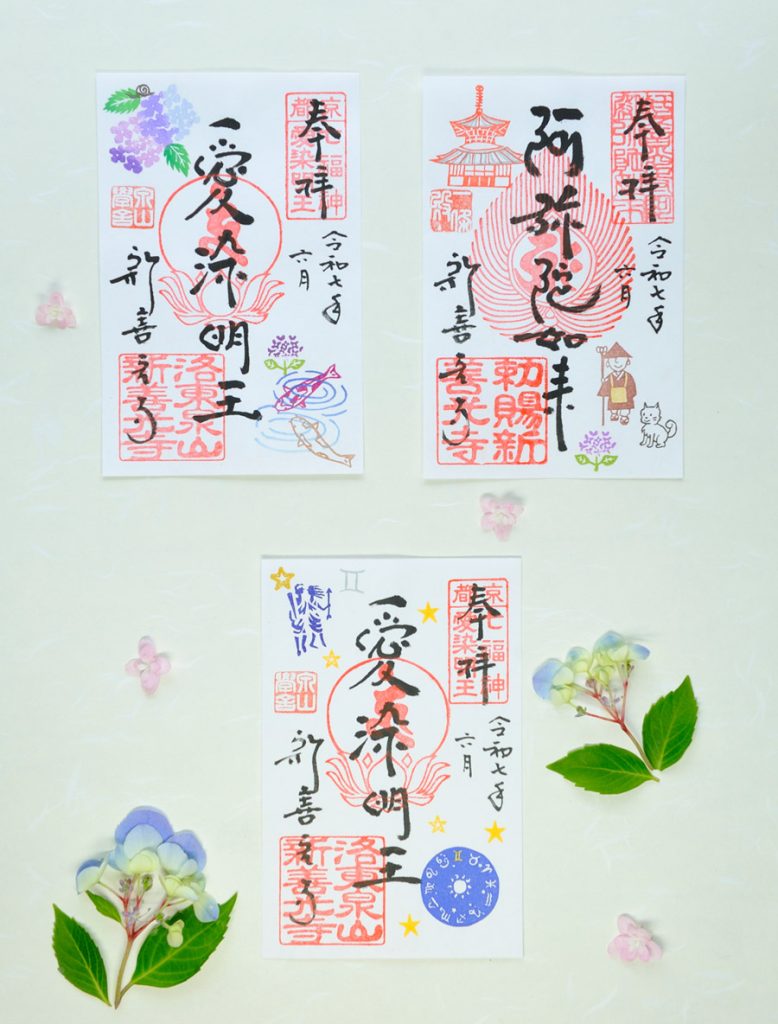 奉拝
京都
七福神
愛染明王
令和七年
六月
愛染明王
泉山
學舎
新善光寺
洛東泉山
新善光寺
奉拝
令和七年
六月
阿弥陀如来
新善光寺
勅賜新
善光寺
奉拝
京都
七福神
愛染明王
令和七年
六月
愛染明王
泉山
學舎
新善光寺
洛東泉山
新善光寺